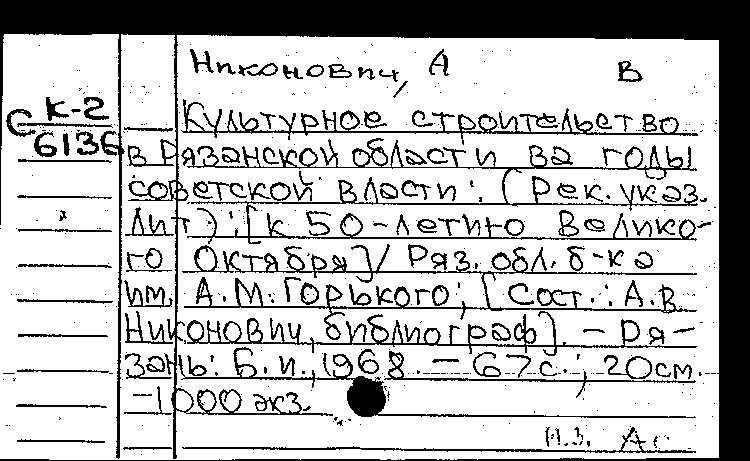 Никонович, А В
С К-2
6136
Культурное строительство
в Рязанской области за годы
советской власти: (Рек. указ.
лит): [К 50-летию Велико-
го Октября] / Ряз. обл. б-ка
им. А.М. Горького; [Сост.: А.В.
Никонович, библиограф]. – Ря-
зань: Б.и., 1968. – 67с.; 20см.
–1000 экз.